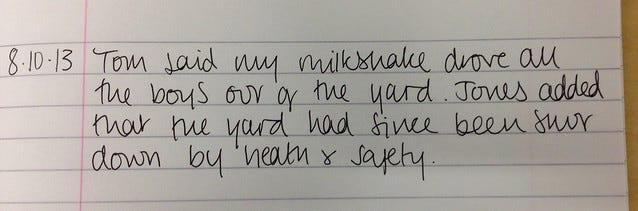 8.10.13 Tom said my milkshake drove all
the boys out of the yard. Jones added
that the yard had since been shut
down by health & safety.